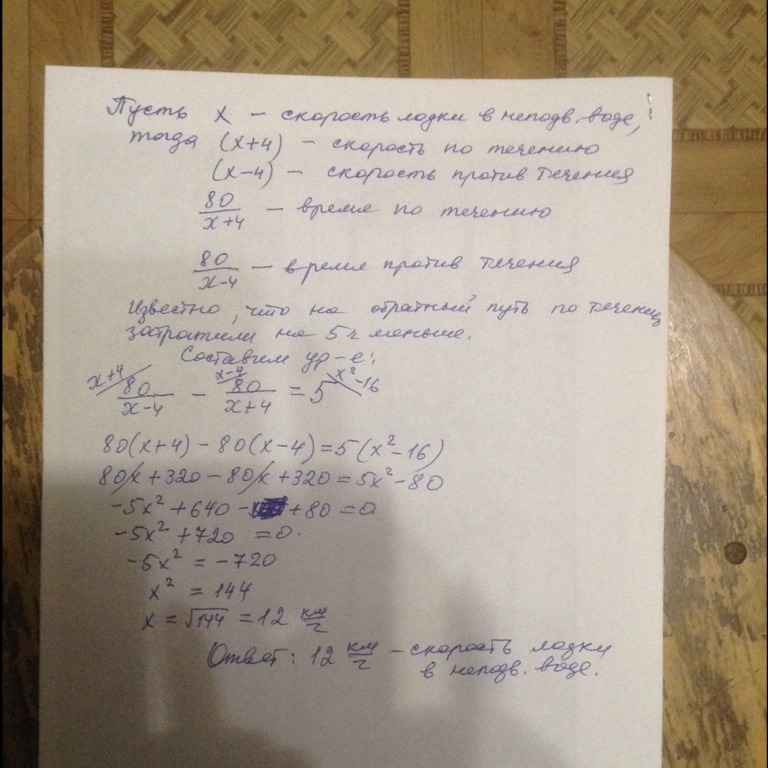 Пусть x – скорость лодки в неподв. воде,
тогда (x+4) – скорость по течению
(x-4) – скорость против течения
80/(x+4) – время по течению
80/(x-4) – время против течения
Известно, что на обратный путь по течению
затратили на 5 ч меньше.
Составим ур-е:
x+4 80/(x-4) - x-4 80/(x+4) = 5 x²-16
80(x+4) - 80(x-4) = 5(x²-16)
80x+320-80x+320=5x²-80
-5x²+640- +80=0
-5x²+720 =0.
-5x² = -720
x² = 144
x = √144 = 12 км/ч
Ответ: 12 км/ч – скорость лодки
в неподв. воде.